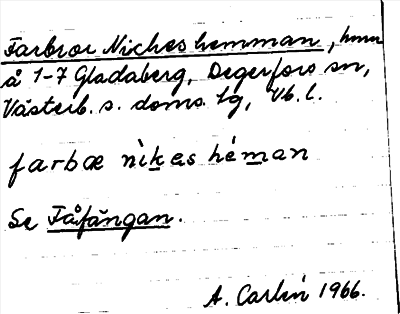 Farbror Nickes hemman, hmn
å 1-7 Gladaberg, Degerfors sn,
Västerb. s. doms. lg, Vb. l.
farbœ nìkes héman
Se Fåfängan.
A. Carlén 1966.